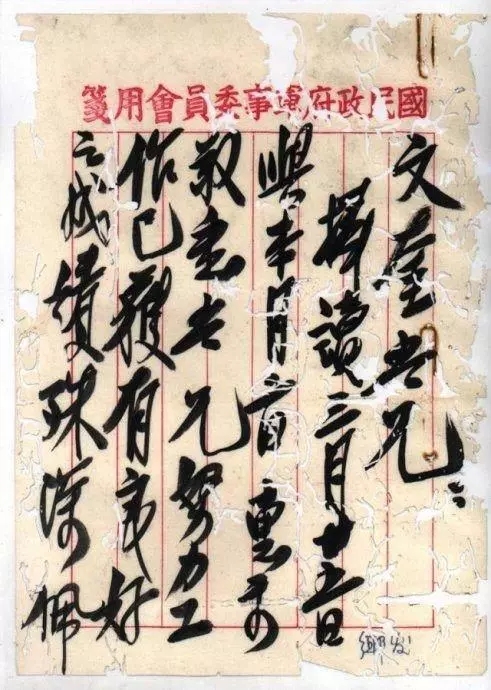 國民政府軍事委員會用箋
文臺吾兄：
捧讀三月十日
與本月日惠示
敬悉吾兄努力工
作已獲有良好
之成績殊深佩